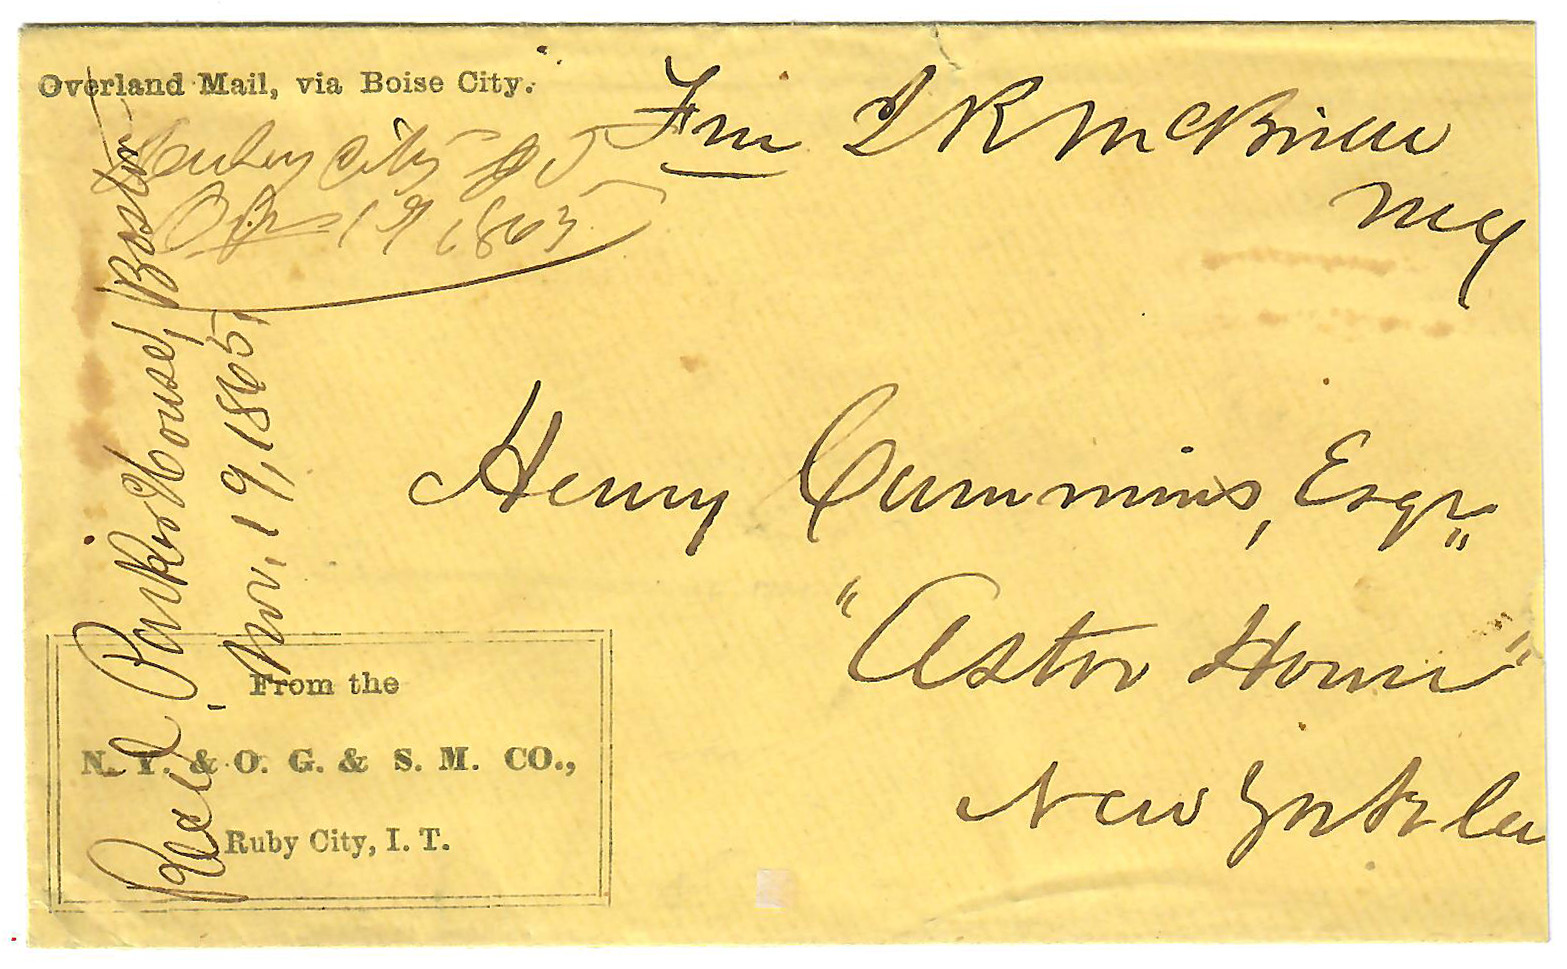 Overland Mail, via Boise City.
Ruby City I T
1865
Fm D R McBride
Henry Cummins, Esqr
"Astor House"
New York
Recd Parker House, Boston
Nov. 19, 1865,
From the
N. Y. & O. G. & S. M. CO.,
Ruby City, I. T.